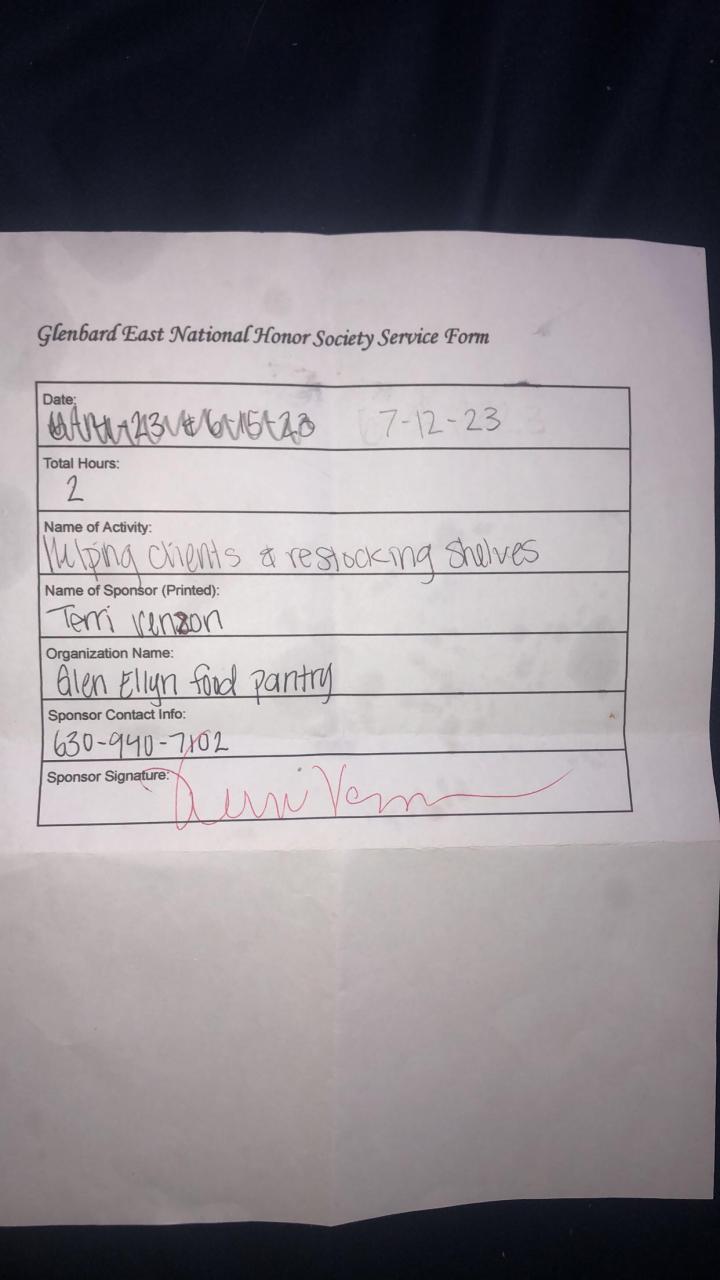 Glenbard East National Honor Society Service Form
Date:
7-12-23
Total Hours:
2
Name of Activity:
Helping clients & restocking shelves
Name of Sponsor (Printed):
Terri Venzon
Organization Name:
Glen Ellyn food pantry
Sponsor Contact Info:
630-940-7102
Sponsor Signature: